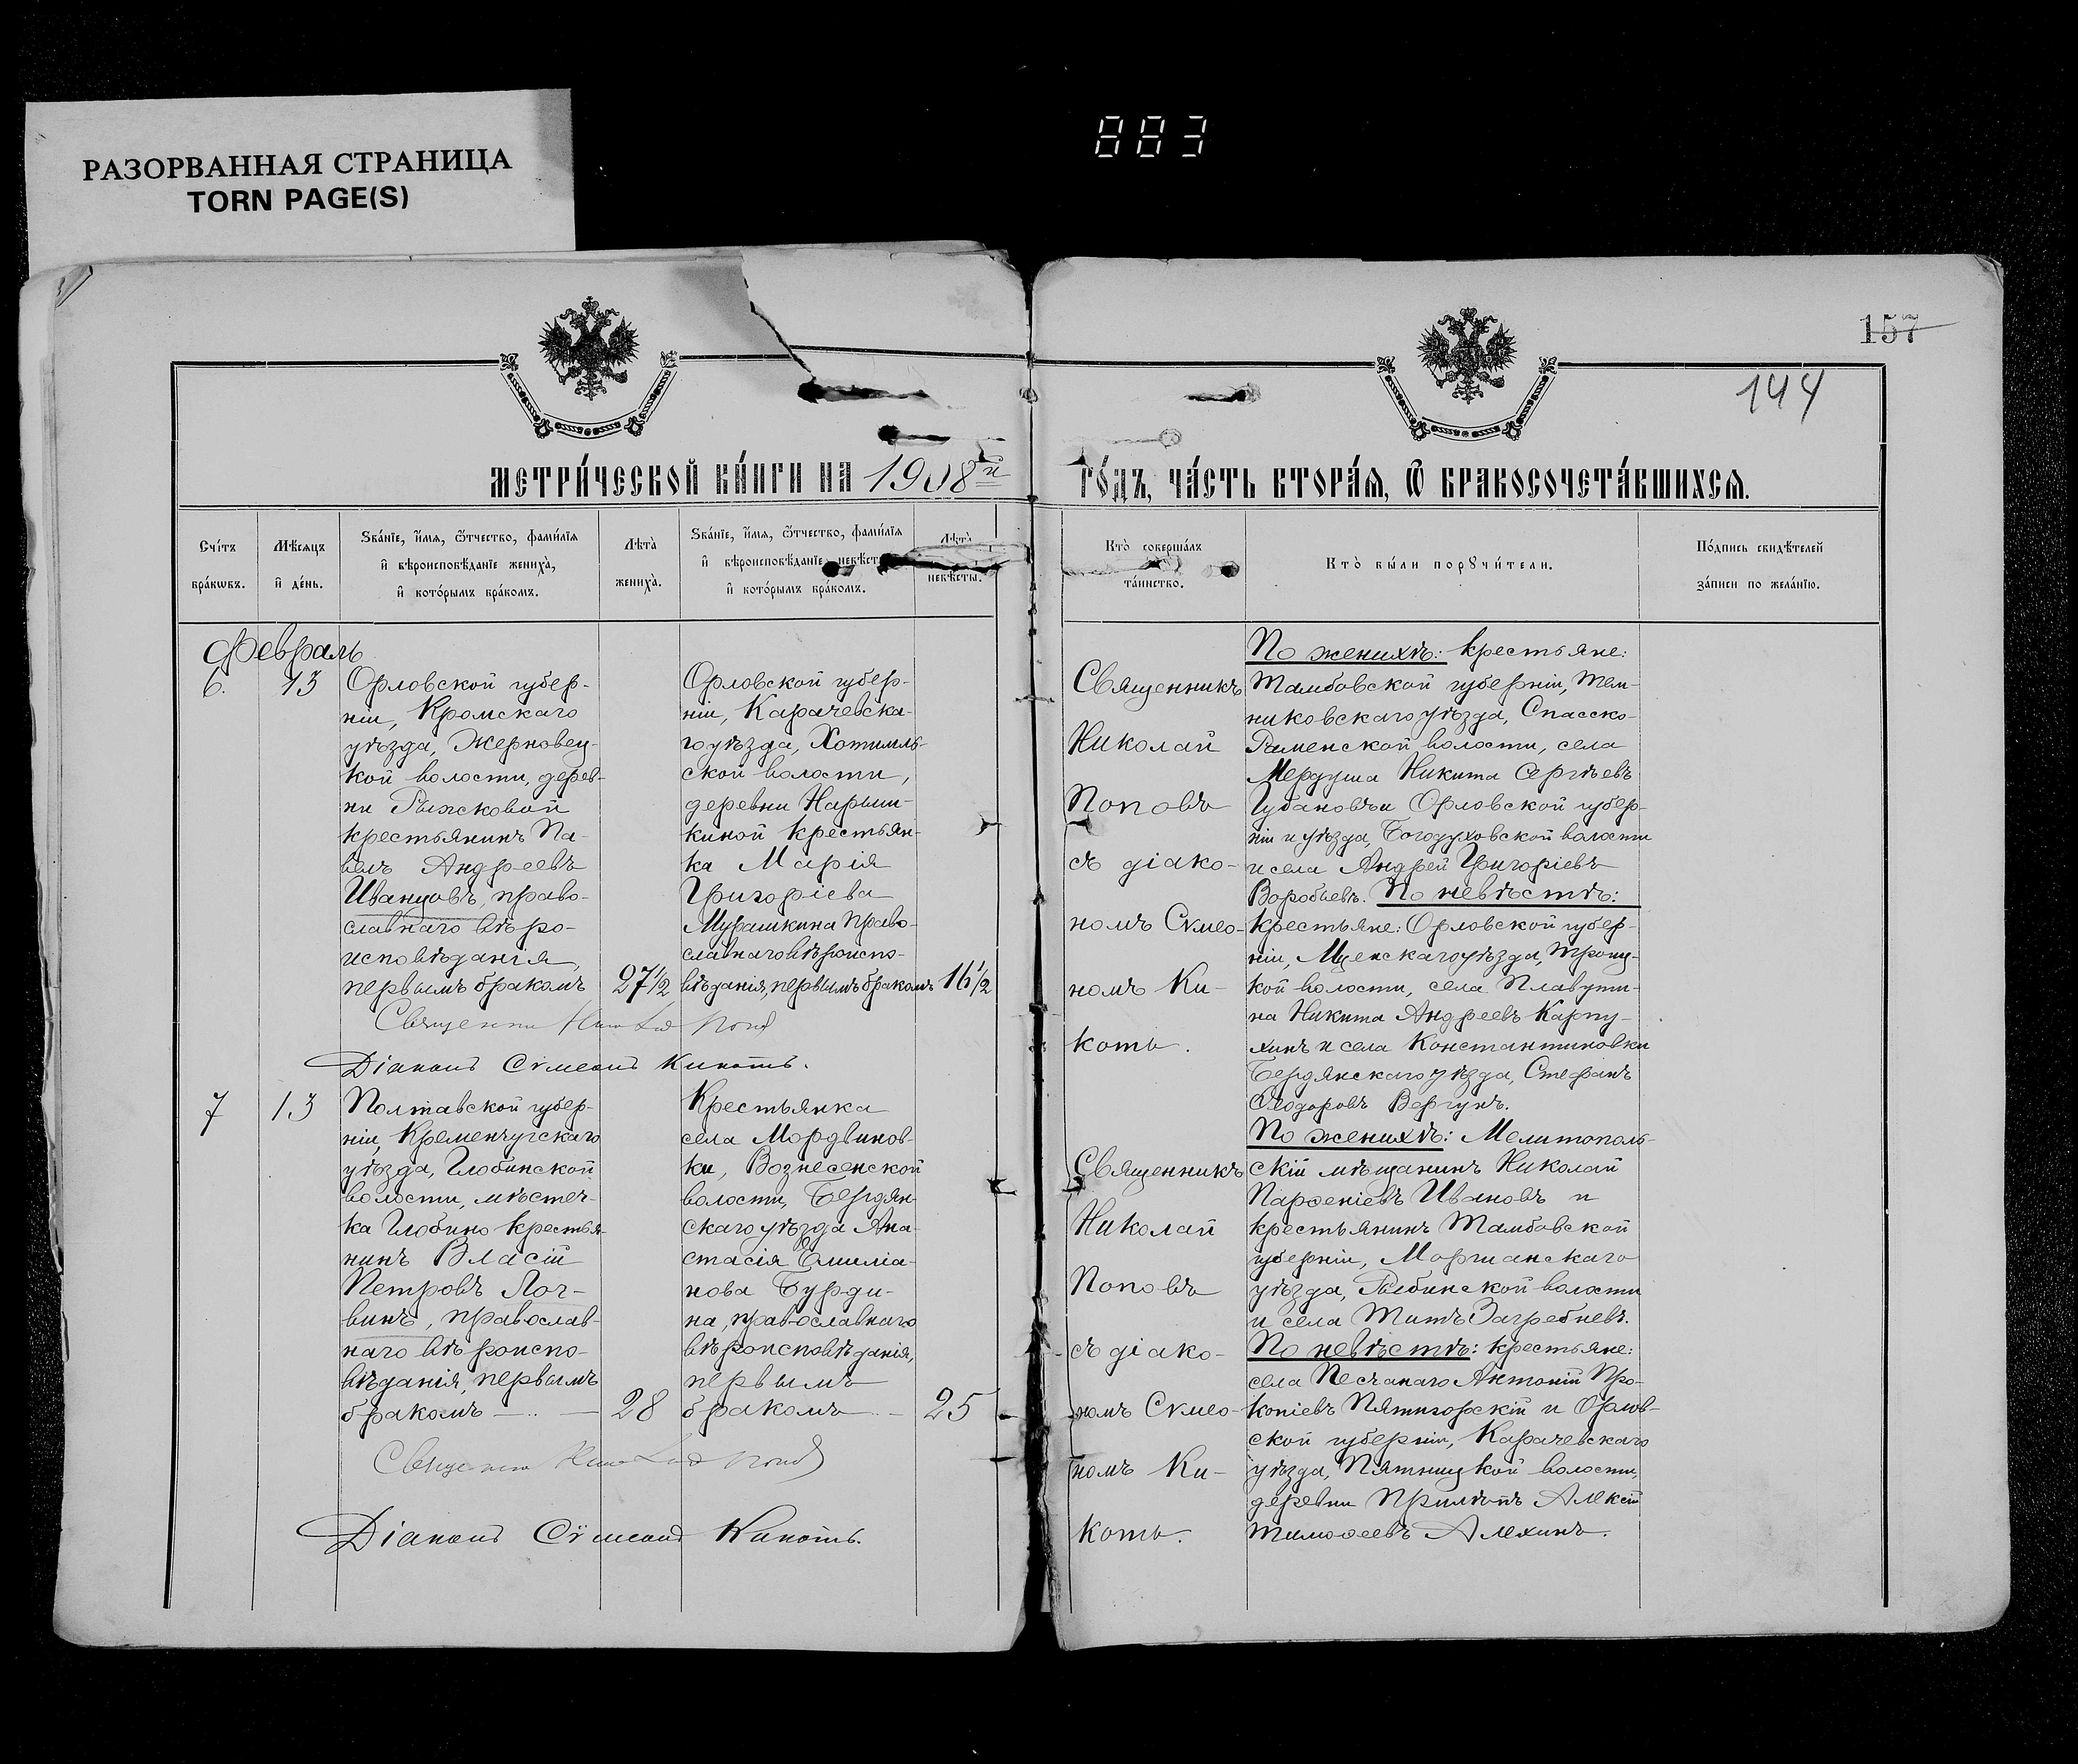 РАЗОРВАННАЯ СТРАНИЦА
TORN PAGE(S)
883
157
144
МЕТРИ́ЧЕСКОЙ КНИ́ГИ НА 1908й
ГО́ДЪ, ЧА́СТЬ ВТОРА́Я, Ѿ БРАКОСОЧЕТА́ВШИХСЯ.
Сче́тъ бра́кѡвъ.
Мѣ́сяцъ и҆ де́нь.
Ѕва́нїе, и҆́мя, ѻ҆́тчество, фами́лїя
и҆ вѣроисповѣ́данїе жениха̀,
и҆ кото́рымъ бра́комъ.
Лѣта̀
жениха̀.
Ѕва́нїе, и҆́мя, ѻ҆́тчество, фами́лїя
и҆ вѣроисповѣ́данїе невѣ́сты
и҆ кото́рымъ бра́комъ.
Лѣта̀
невѣ́сты.
Кто̀ соверша́лъ
та́инство.
Кто̀ бы́ли порꙋчи́тели.
По́дпись свидѣ́телей
за́писи по жела́нїю.
Февраль
6.
13
Орловской губер-
ніи, Кромскаго
уѣзда, Жерновец-
кой волости, дерев-
ни Рыжковой
крестьянинъ Па-
велъ Андреевъ
Иванцовъ, право-
славнаго вѣро-
исповѣданія,
первымъ бракомъ
27½
Орловской губер-
ніи, Карачевска-
го уѣзда, Хотимль-
ской волости,
деревни Нарыш-
киной крестьян-
ка Марія
Григоріева
Мурашкина право-
славнаго вѣроиспо-
вѣданія, первымъ бракомъ
16½
Священникъ
Николай
Поповъ
съ діако-
номъ Сѵмео-
номъ Ки-
коть.
По женихѣ: крестьяне:
Тамбовской губерніи, Тем-
никовскаго уѣзда, Спасско-
Раменской волости, села
Мердуша Никита Сергѣевъ
Губановъ и Орловской губер-
ніи и уѣзда, Богодуховской волости
и села Андрей Григоріевъ
Воробьевъ. По невѣстѣ:
крестьяне: Орловской губер-
ніи, Мценскаго уѣзда, Троиц-
кой волости, села Плавути-
на Никита Андреевъ Карпу-
хинъ и села Константиновки
Бердянскаго уѣзда, Стефанъ
Ѳеодоровъ Вергунъ.
Священникъ Николай Поповъ
Діаконъ Сѵмеонъ Кикоть.
7
13
Полтавской губер-
ніи, Кременчугскаго
уѣзда, Глобинской
волости, мѣстеч-
ка Глобино крестья-
нинъ Власій
Петровъ Лог-
винъ, православ-
наго вѣроиспо-
вѣданія, первымъ
бракомъ
28
Крестьянка
села Мордвинов-
ки, Вознесенской
волости, Бердян-
скаго уѣзда Ана-
стасія Емиліа-
нова Бурди-
на, православнаго
вѣроисповѣданія,
первымъ
бракомъ
25
Священникъ
Николай
Поповъ
съ діако-
номъ Сѵмео-
номъ Ки-
коть.
По женихѣ: Мелитополь-
скій мѣщанинъ Николай
Парѳеніевъ Ивановъ и
крестьянинъ Тамбовской
губерніи, Моршанскаго
уѣзда, Рыбинской волости
и села Титъ Загребневъ.
По невѣстѣ: крестьяне:
села Песчанаго Антоній Про-
копіевъ Пятигорскій и Орлов-
ской губерніи, Карачевскаго
уѣзда, Пятницкой волости,
деревни Прилѣпъ Алексій
Тимоѳеевъ Алехинъ.
Священникъ Николай Поповъ
Діаконъ Сѵмеонъ Кикоть.